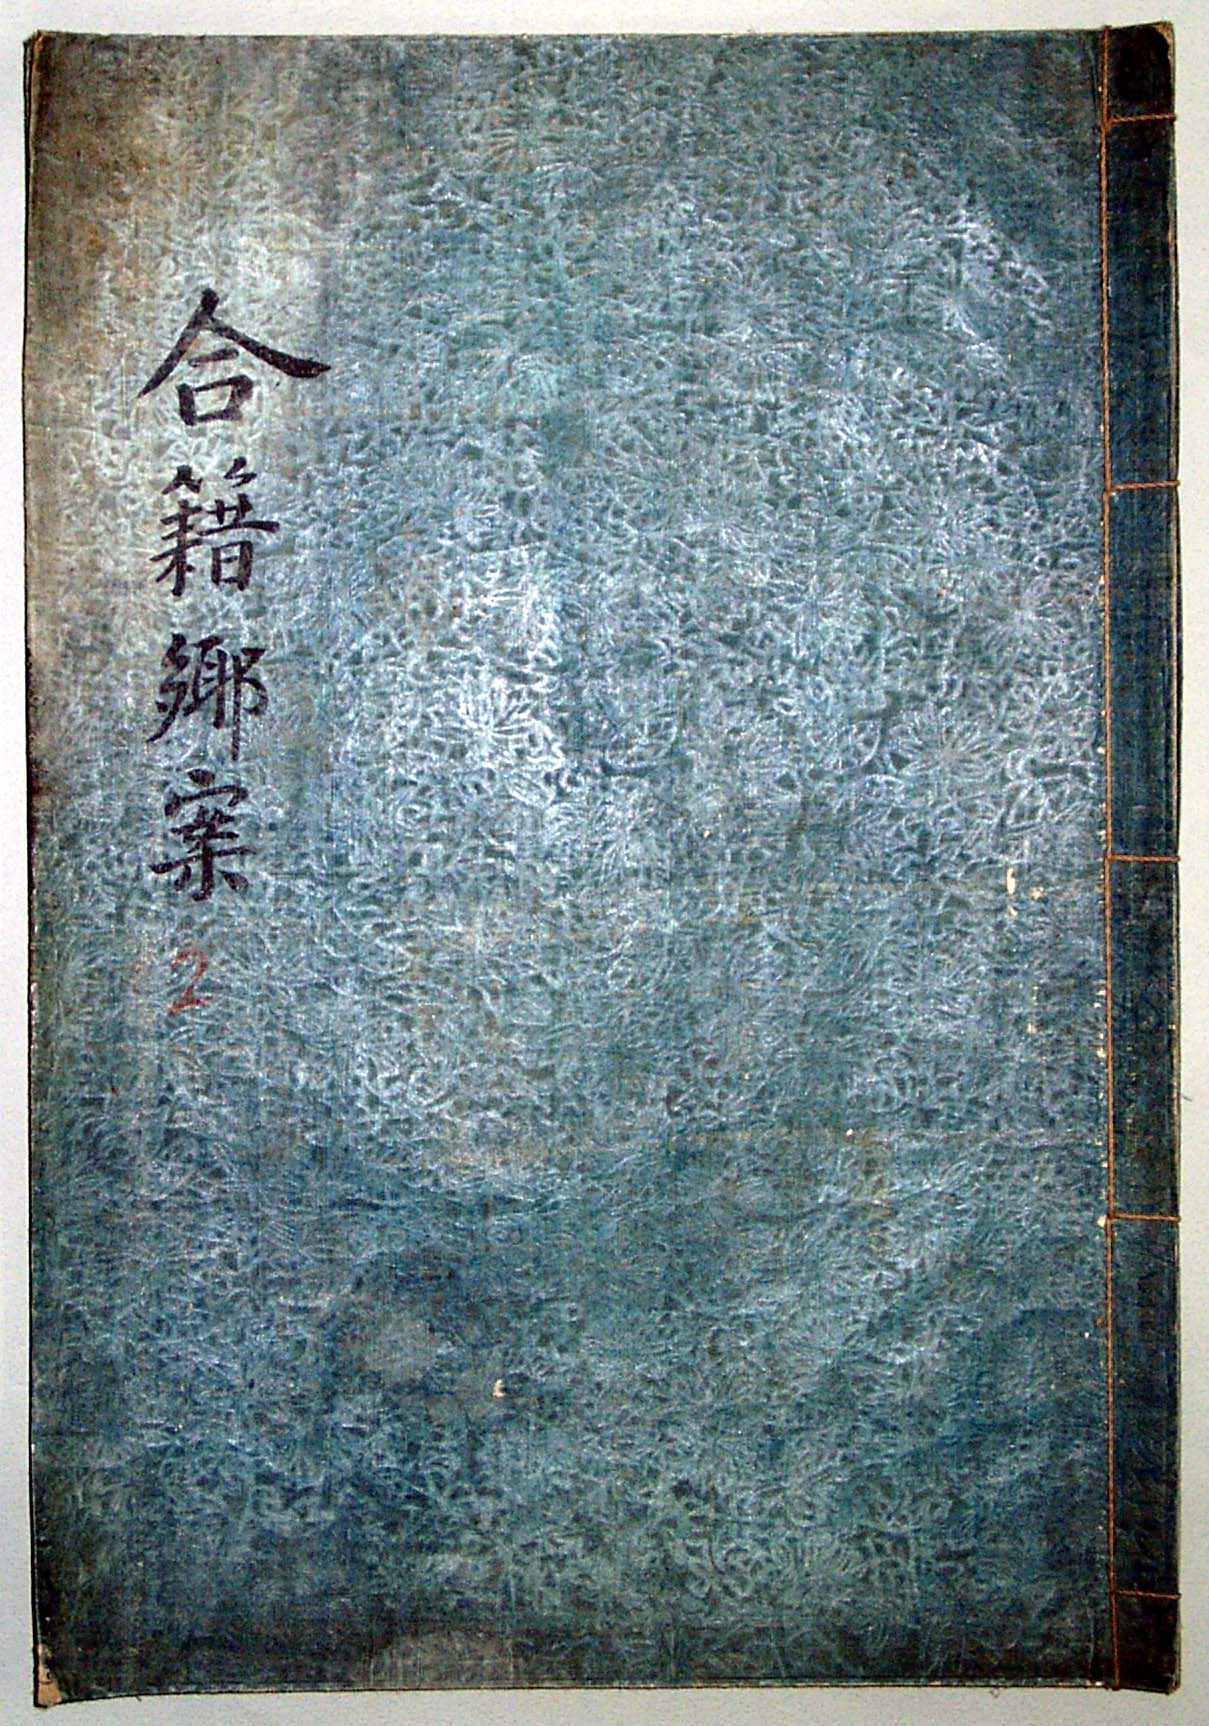 合籍鄕案
2